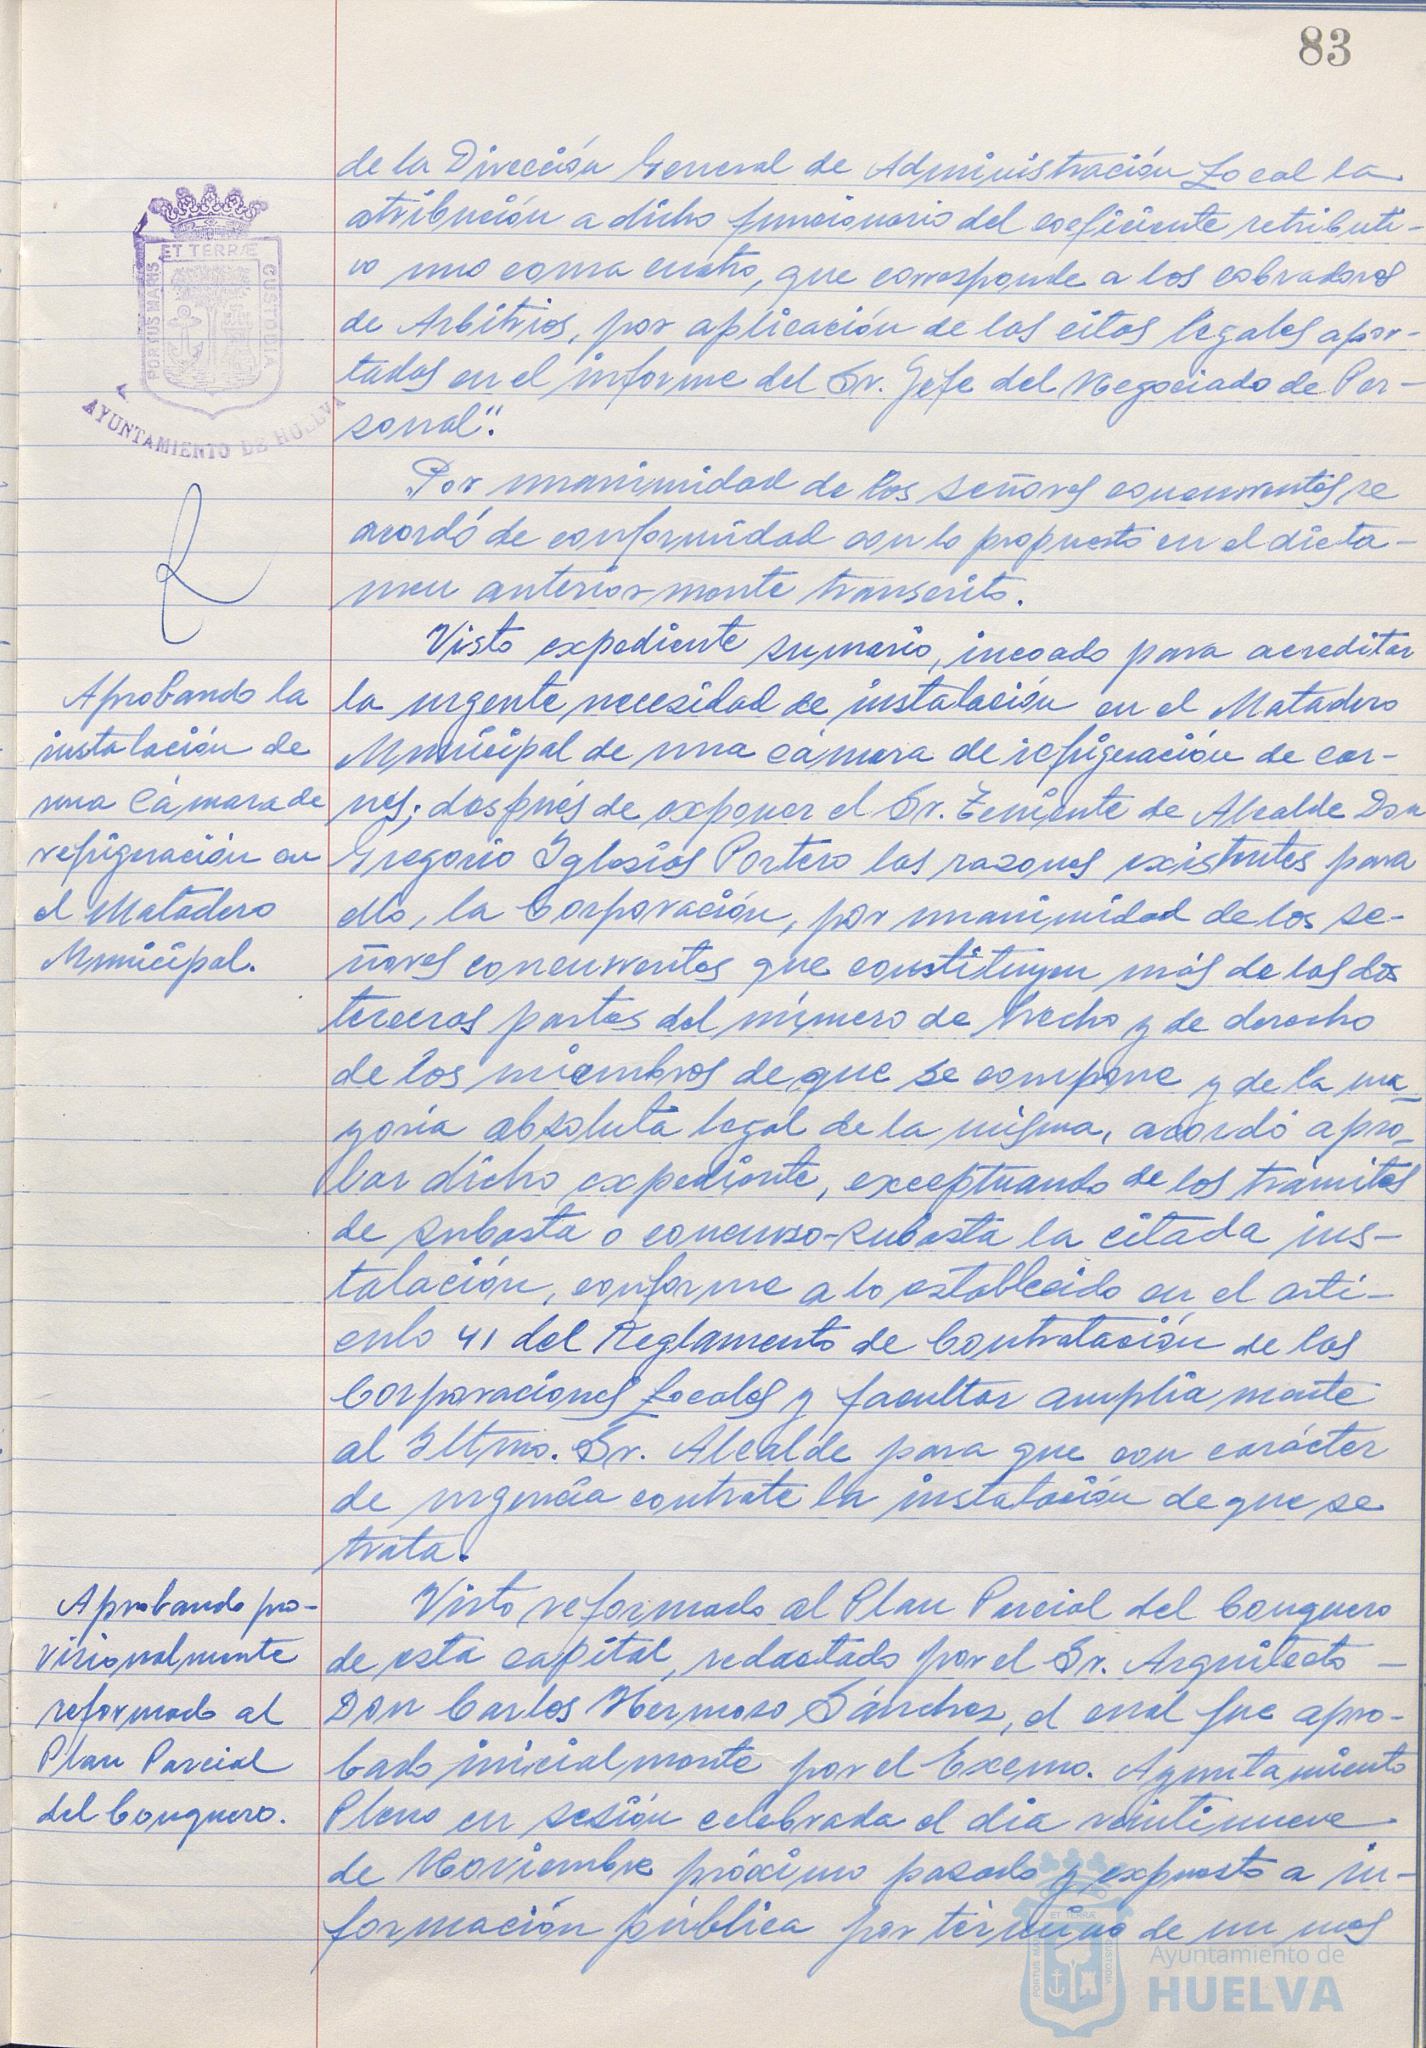 83
de la Dirección General de Administración Local la
atribución a dicho funcionario del coeficiente retributi-
vo uno coma cuatro, que corresponde a los cobradores
de Arbitrios, por aplicación de las citas legales apor-
tadas en el informe del Sr. Gefe del Negociado de Per-
sonal".
Por unanimidad de los señores concurrentes se
acordó de conformidad con lo propuesto en el dicta-
men anteriormente transcrito.
Aprobando la
instalación de
una Cámara de
refrigeración en
el Matadero
Municipal.
Visto expediente sumario, incoado para acreditar
la urgente necesidad de instalación en el Matadero
Municipal de una cámara de refrigeración de car-
nes; después de exponer el Sr. Teniente de Alcalde Don
Gregorio Iglesias Portero las razones existentes para
ello, la Corporación, por unanimidad de los se-
ñores concurrentes que constituyen más de las dos
terceras partes del número de hecho y de derecho
de los miembros de que se compone y de la ma-
yoría absoluta legal de la misma, acordó apro-
bar dicho expediente, exceptuando de los trámites
de subasta o concurso-subasta la citada ins-
talación, conforme a lo establecido en el artí-
culo 41 del Reglamento de Contratación de las
Corporaciones Locales y facultar ampliamente
al Iltmo. Sr. Alcalde para que con carácter
de urgencia contrate la instalación de que se
trata.
Aprobando pro-
visionalmente
reformado al
Plan Parcial
del Conquero.
Visto reformado al Plan Parcial del Conquero
de esta capital, redactado por el Sr. Arquitecto -
Don Carlos Hermoso Sánchez, el cual fue apro-
bado inicialmente por el Excmo. Ayuntamiento
Pleno en sesión celebrada el día veintinueve
de Noviembre próximo pasado y expuesto a in-
formación pública por término de un mes
PORTUS MARIS
ET TERRÆ
CUSTODIA
AYUNTAMIENTO DE HUELVA
PORTUS MARIS
ET TERRÆ
CUSTODIA
Ayuntamiento de
HUELVA